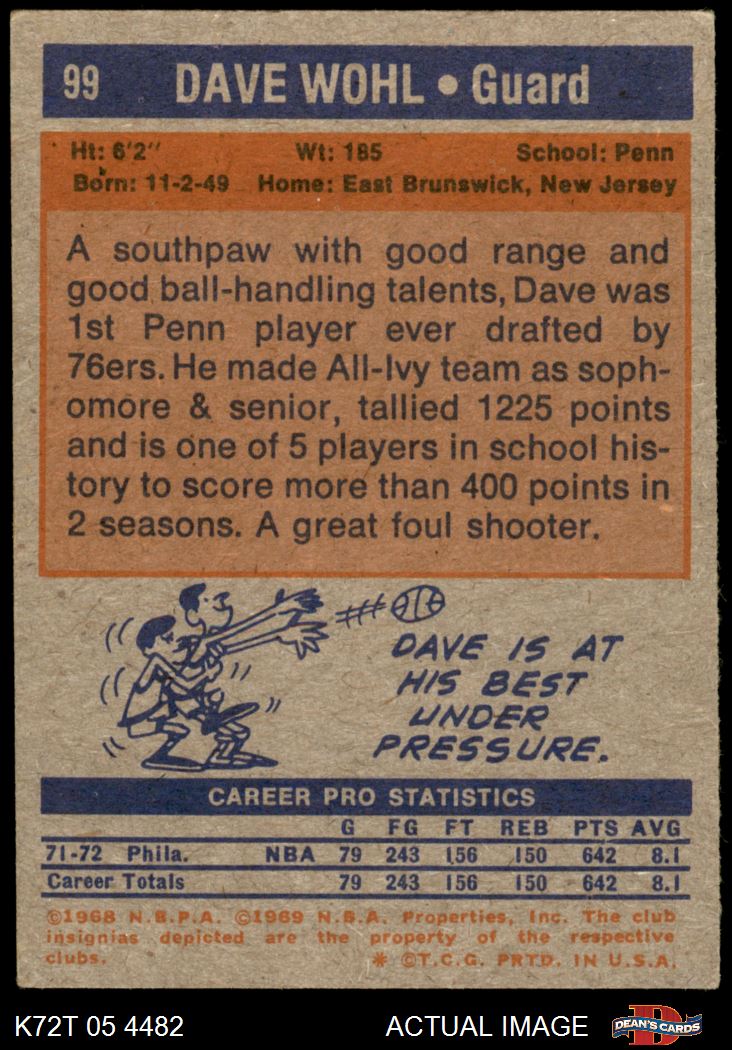 99 DAVE WOHL • Guard
Ht: 6'2" Wt: 185 School: Penn
Born: 11-2-49 Home: East Brunswick, New Jersey
A southpaw with good range and
good ball-handling talents, Dave was
1st Penn player ever drafted by
76ers. He made All-Ivy team as soph-
omore & senior, tallied 1225 points
and is one of 5 players in school his-
tory to score more than 400 points in
2 seasons. A great foul shooter.
DAVE IS AT
HIS BEST
UNDER
PRESSURE.
CAREER PRO STATISTICS
G FG FT REB PTS AVG
71-72 Phila. NBA 79 243 156 150 642 8.1
Career Totals 79 243 156 150 642 8.1
©1968 N.B.P.A. ©1969 N.B.A. Properties, Inc. The club
insignias depicted are the property of the respective
clubs. * ©T.C.G. PRTD. IN U.S.A.
K72T 05 4482 ACTUAL IMAGE D DEAN'S CARDS